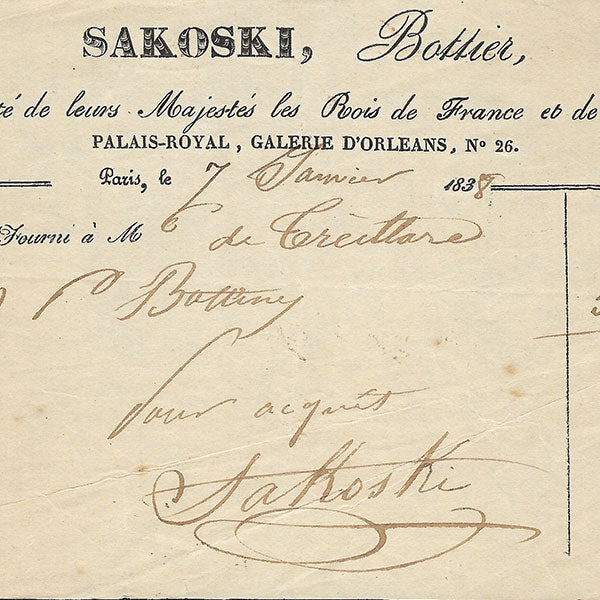 SAKOSKI, Bottier,
té de leurs Majestés les Rois de France et de
PALAIS-ROYAL, GALERIE D'ORLEANS, Nº 26.
Paris, le 7 Janvier 1838
Fourni à M de Treillare
Bottines
Pour acquit
Sakoski